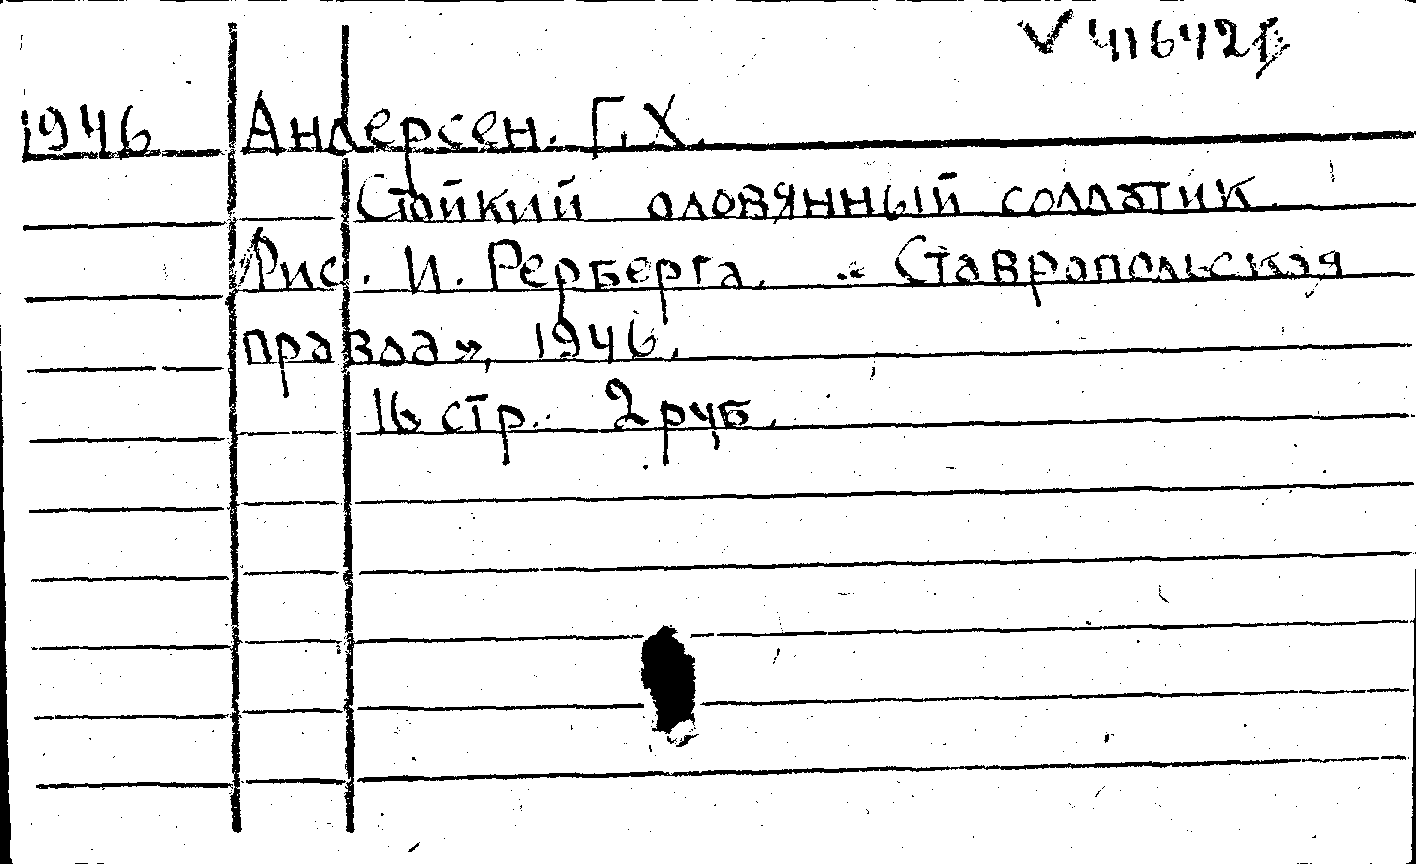 ✓ 416421
1946 Андерсен. Г. Х.
Стойкий оловянный солдатик.
Рис. И. Рерберга. «Ставропольская
правда», 1946.
16 стр. 2 руб.